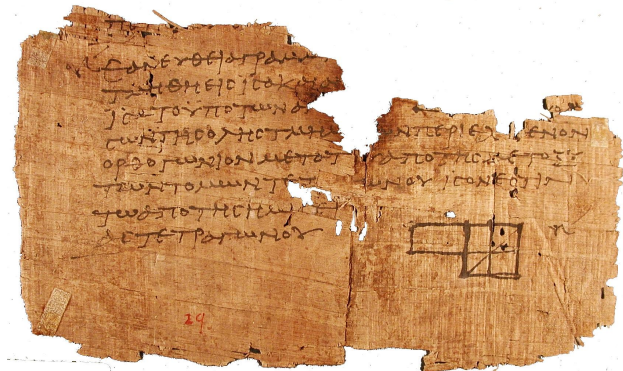 ΕΑΝ ΕΥΘΕΙΑ ΓΡΑΜΜ
ΤΜΗΘΗ ΕΙϹ ΙϹΑ Κ
ΙϹΑ ΤΟ ΥΠΟ ΤΩΝ Α
ϹΩΝ ΤΗϹ ΟΛΗϹ ΤΜΗΜ ΩΝ ΠΕΡΙΕΧ ΜΕΝΟΝ
ΟΡΘΟΓΩΝΙΟΝ ΜΕΤΑ ΤΟΥ ΑΠΟ ΤΗϹ ΜΕΤΟΞΥ
ΤΩΝ ΤΟΜΩΝ ΤΕΤ ΩΝΟΥ ΙϹΟΝ ΕϹΤΙΝ
ΤΩ ΑΠΟ ΤΗϹ ΗΜΙ
ΑϹ ΤΕΤΡΑΓΩΝΟΥ
29